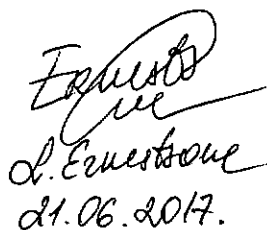 Ernests
one
L. Ernestsone
21.06.2017.